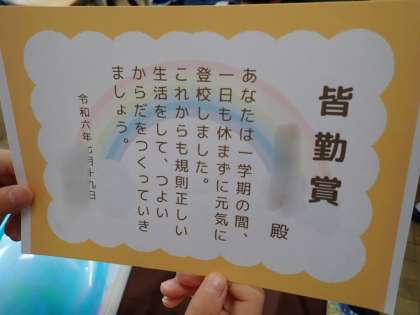 皆勤賞
殿
あなたは一学期の間、
一日も休まずに元気に
登校しました。
これからも規則正しい
生活をして、つよい
からだをつくっていき
ましょう。
令和六年七月十九日